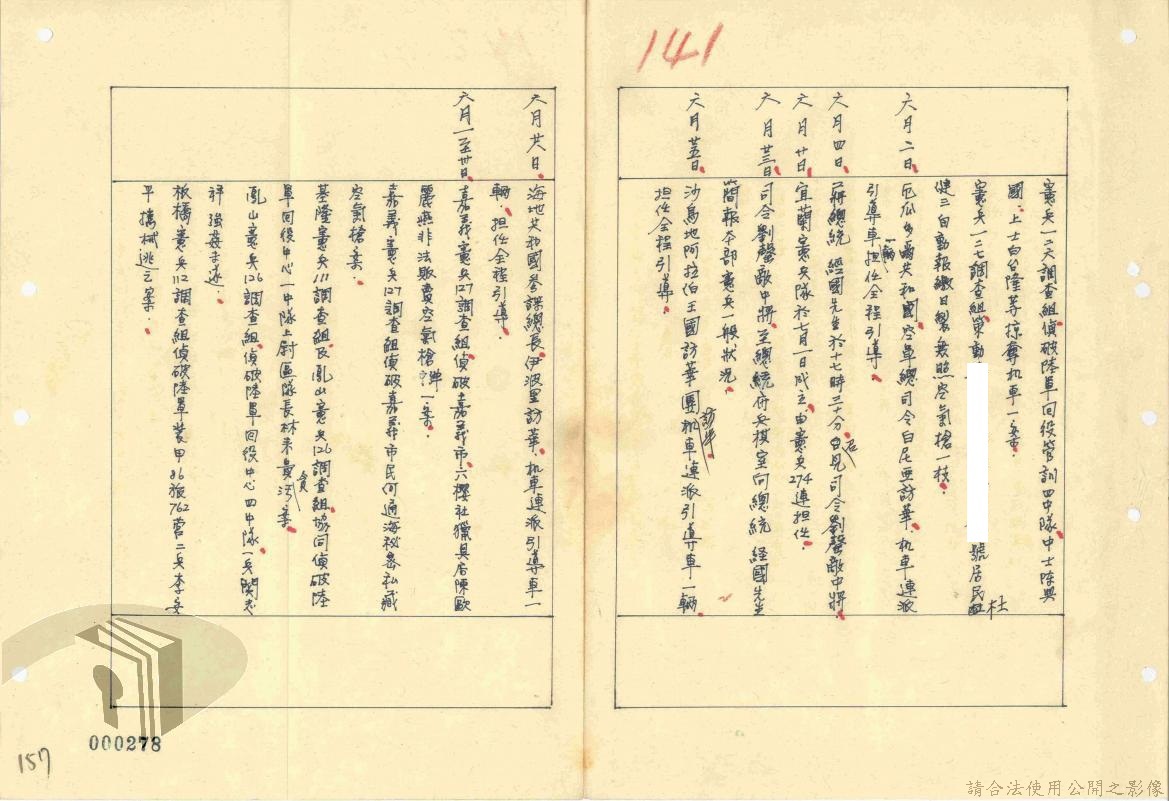 141
憲兵一二六調查組偵破陸軍回役管訓四中隊中士陳興
國、上士白台隆等掠奪机車一案。
憲兵一二七調查組策動
號居民 杜
健三自動報繳日製無照空氣槍一枝。
六月二日、厄瓜多爾共和國空軍總司令白尼亞訪華、机車連派
一輛
引導車担任全程引導。
六月四日、蔣總統 經國先生於十七時二十分召見司令劉罄敵中將。
六月廿日、宜蘭憲兵隊於七月一日成立、由憲兵274連担任。
六月廿三日、司令劉罄敵中將、至總統府兵棋室向總統 經國先生
簡報本部憲兵一般狀況。
六月廿五日、沙烏地阿拉伯王國訪華團訪華、机車連派引導車一輛、
担任全程引導。
六月廿八日、海地共和國參謀總長伊波里訪華、机車連派引導車一
輛、担任全程引導。
六月一至卅日、嘉義憲兵127調查組偵破嘉義市六櫻社獵具店陳歐
麗燕非法販賣空氣槍彈一案。
嘉義憲兵127調查組偵破嘉義市民何通海秘密私藏
空氣槍案。
基隆憲兵111調查組及鳳山憲兵126調查組協同偵破陸
軍回役中心一中隊上尉區隊長林來貴貪污案。
鳳山憲兵126調查組偵破陸軍回役中心四中隊一兵関志
祥強姦未遂。
板橋憲兵112調查組偵破陸軍裝甲86旅762營二兵李安
平攜械逃亡案。
000278
157
請合法使用公開之影像